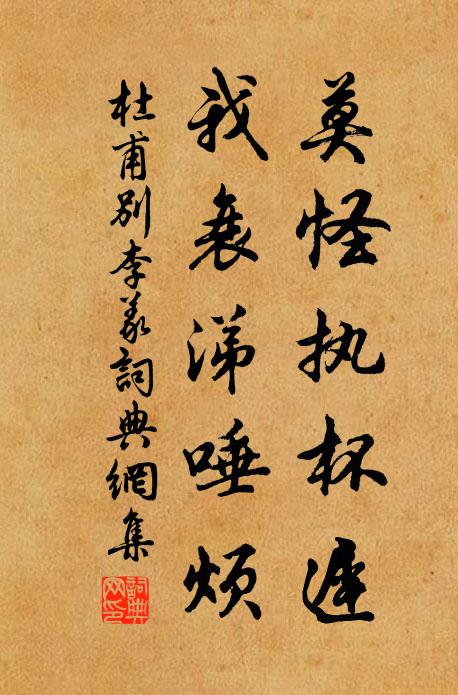 莫怪执杯遲
我衰涕唾煩
杜甫别李義詞典網集
詞典网印